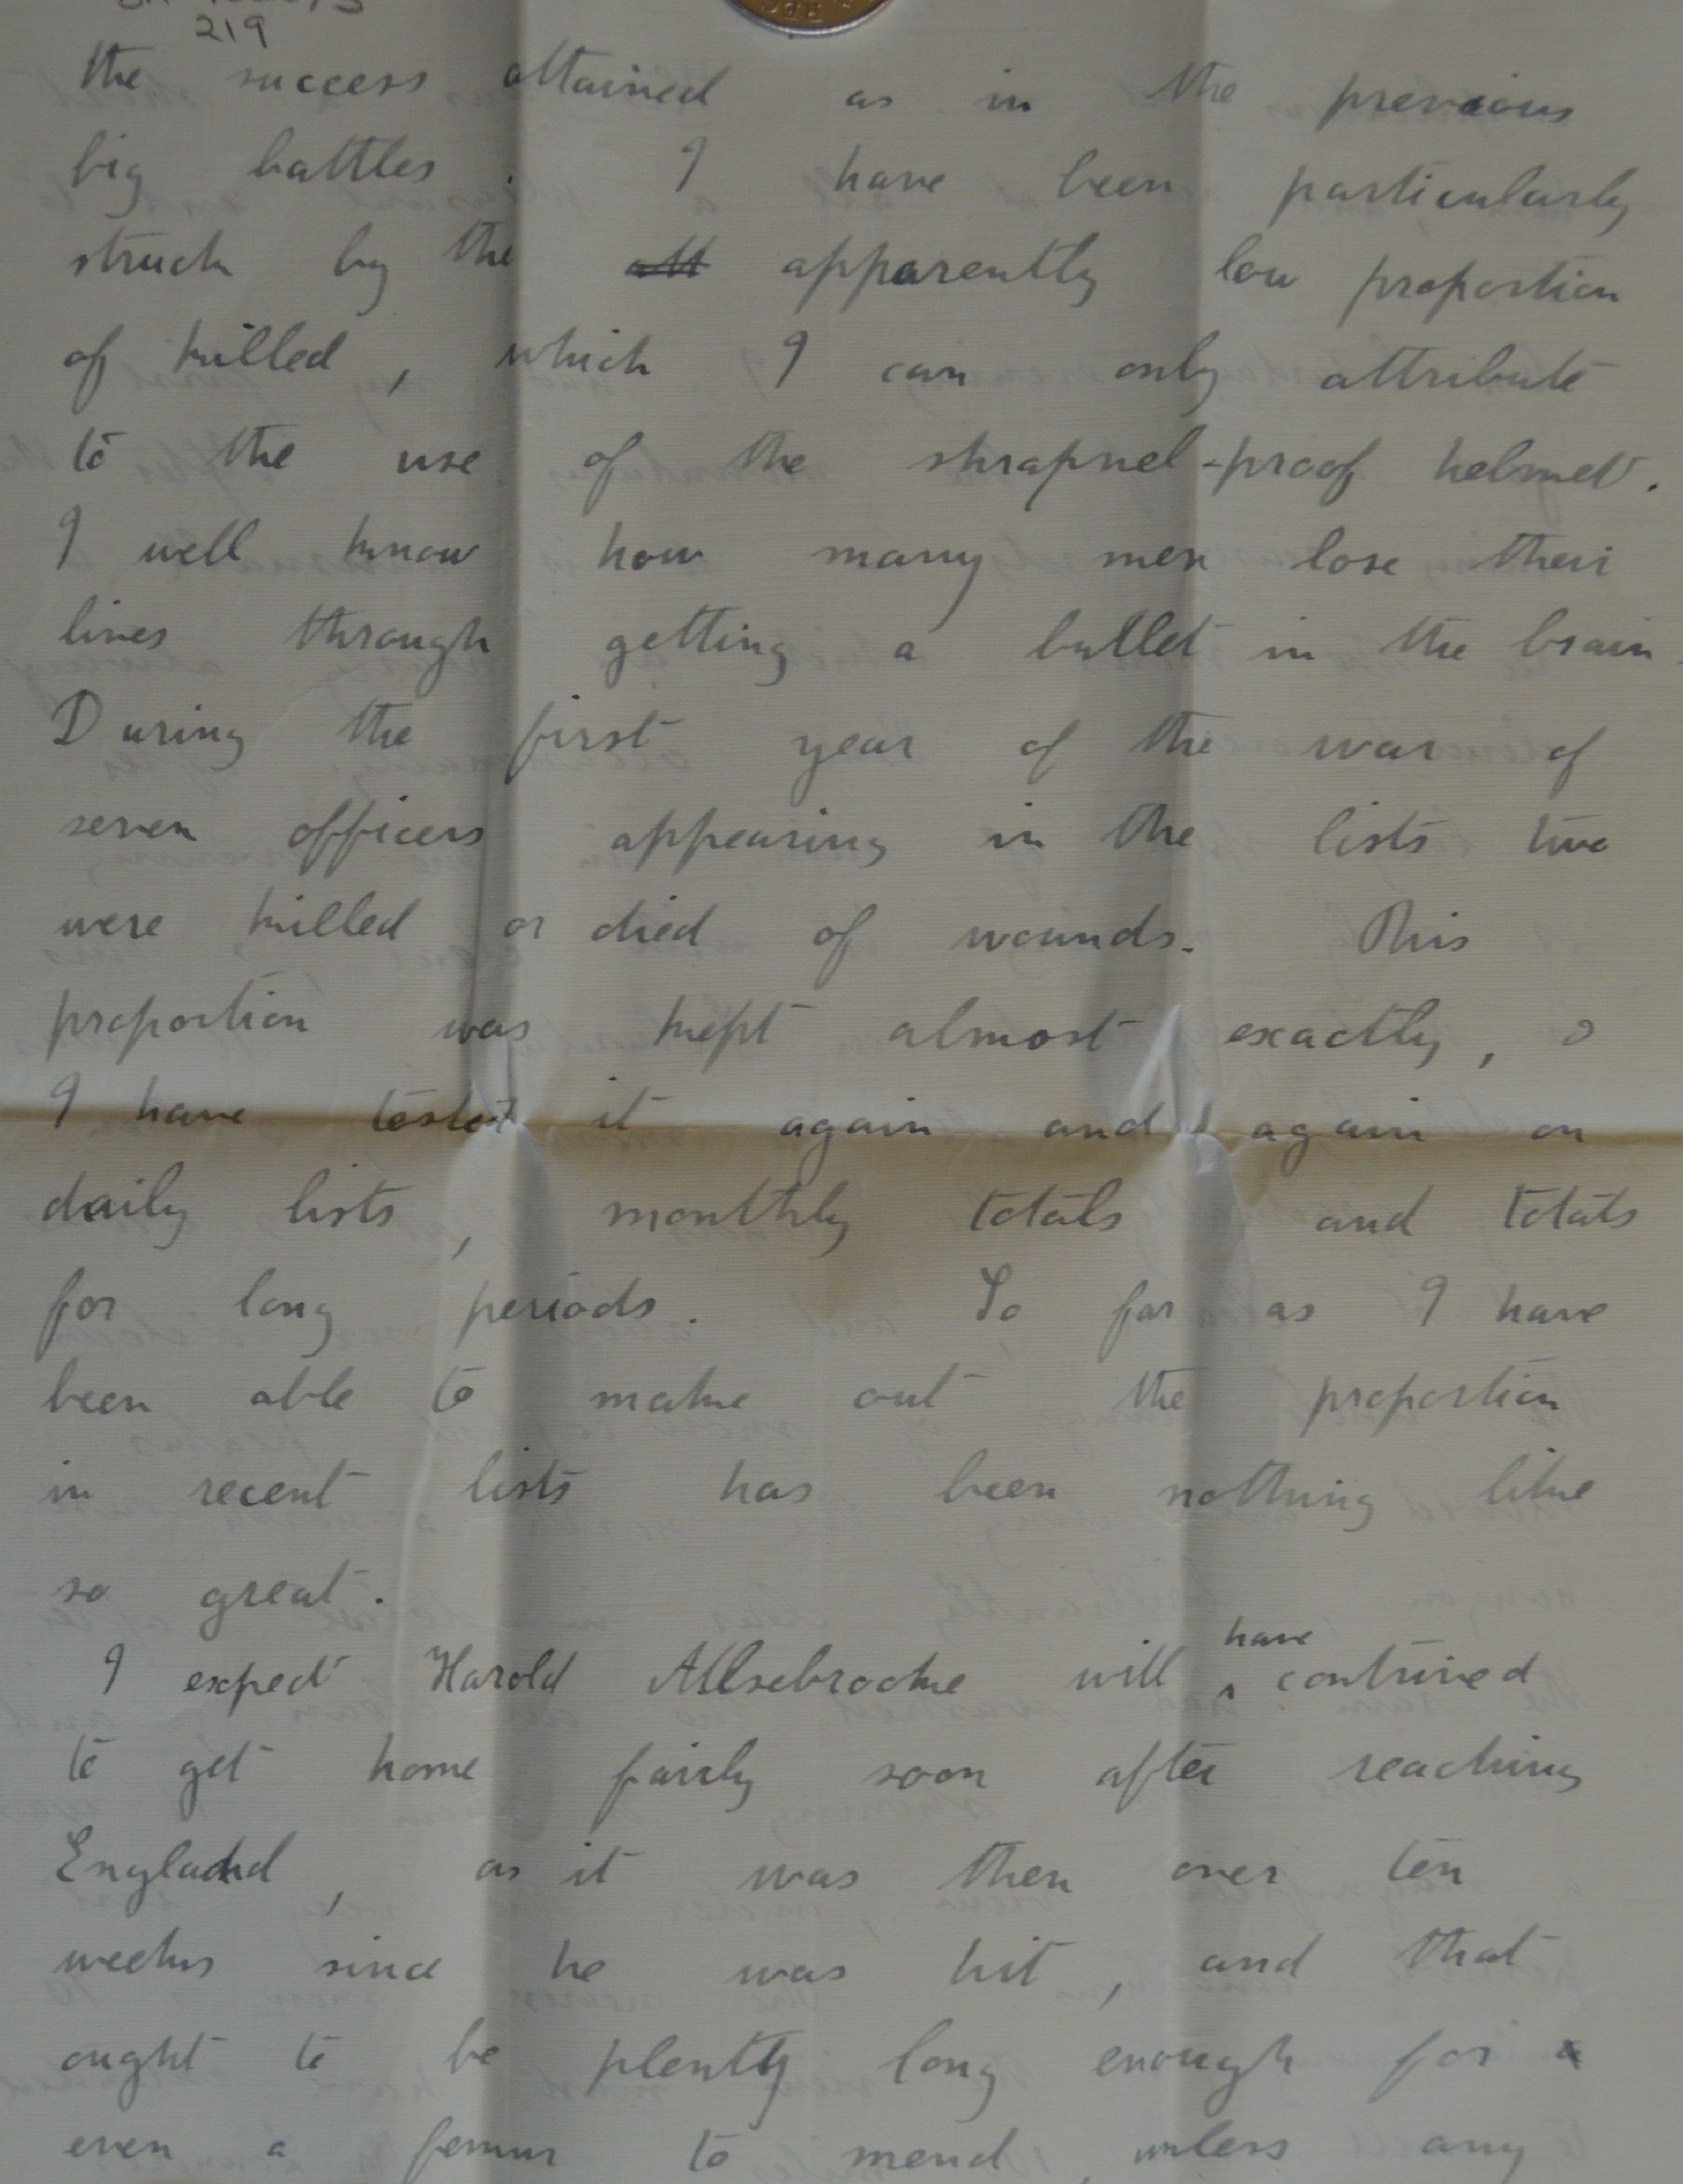 219
the success attained as in the previous
big battles. I have been particularly
struck by the att apparently low proportion
of killed, which I can only attribute
to the use of the shrapnel-proof helmet.
I well know how many men lose their
lives through getting a bullet in the brain.
During the first year of the war of
seven officers appearing in the lists two
were killed or died of wounds. This
proportion was kept almost exactly, &
I have tested it again and again on
daily lists, monthly totals and totals
for long periods. So far as I have
been able to make out the proportion
in recent lists has been nothing like
so great.
I expect Harold Allsebrooke will have contrived
to get home fairly soon after reaching
England, as it was then over ten
weeks since he was hit, and that
ought to be plenty long enough for
even a femur to mend, unless any